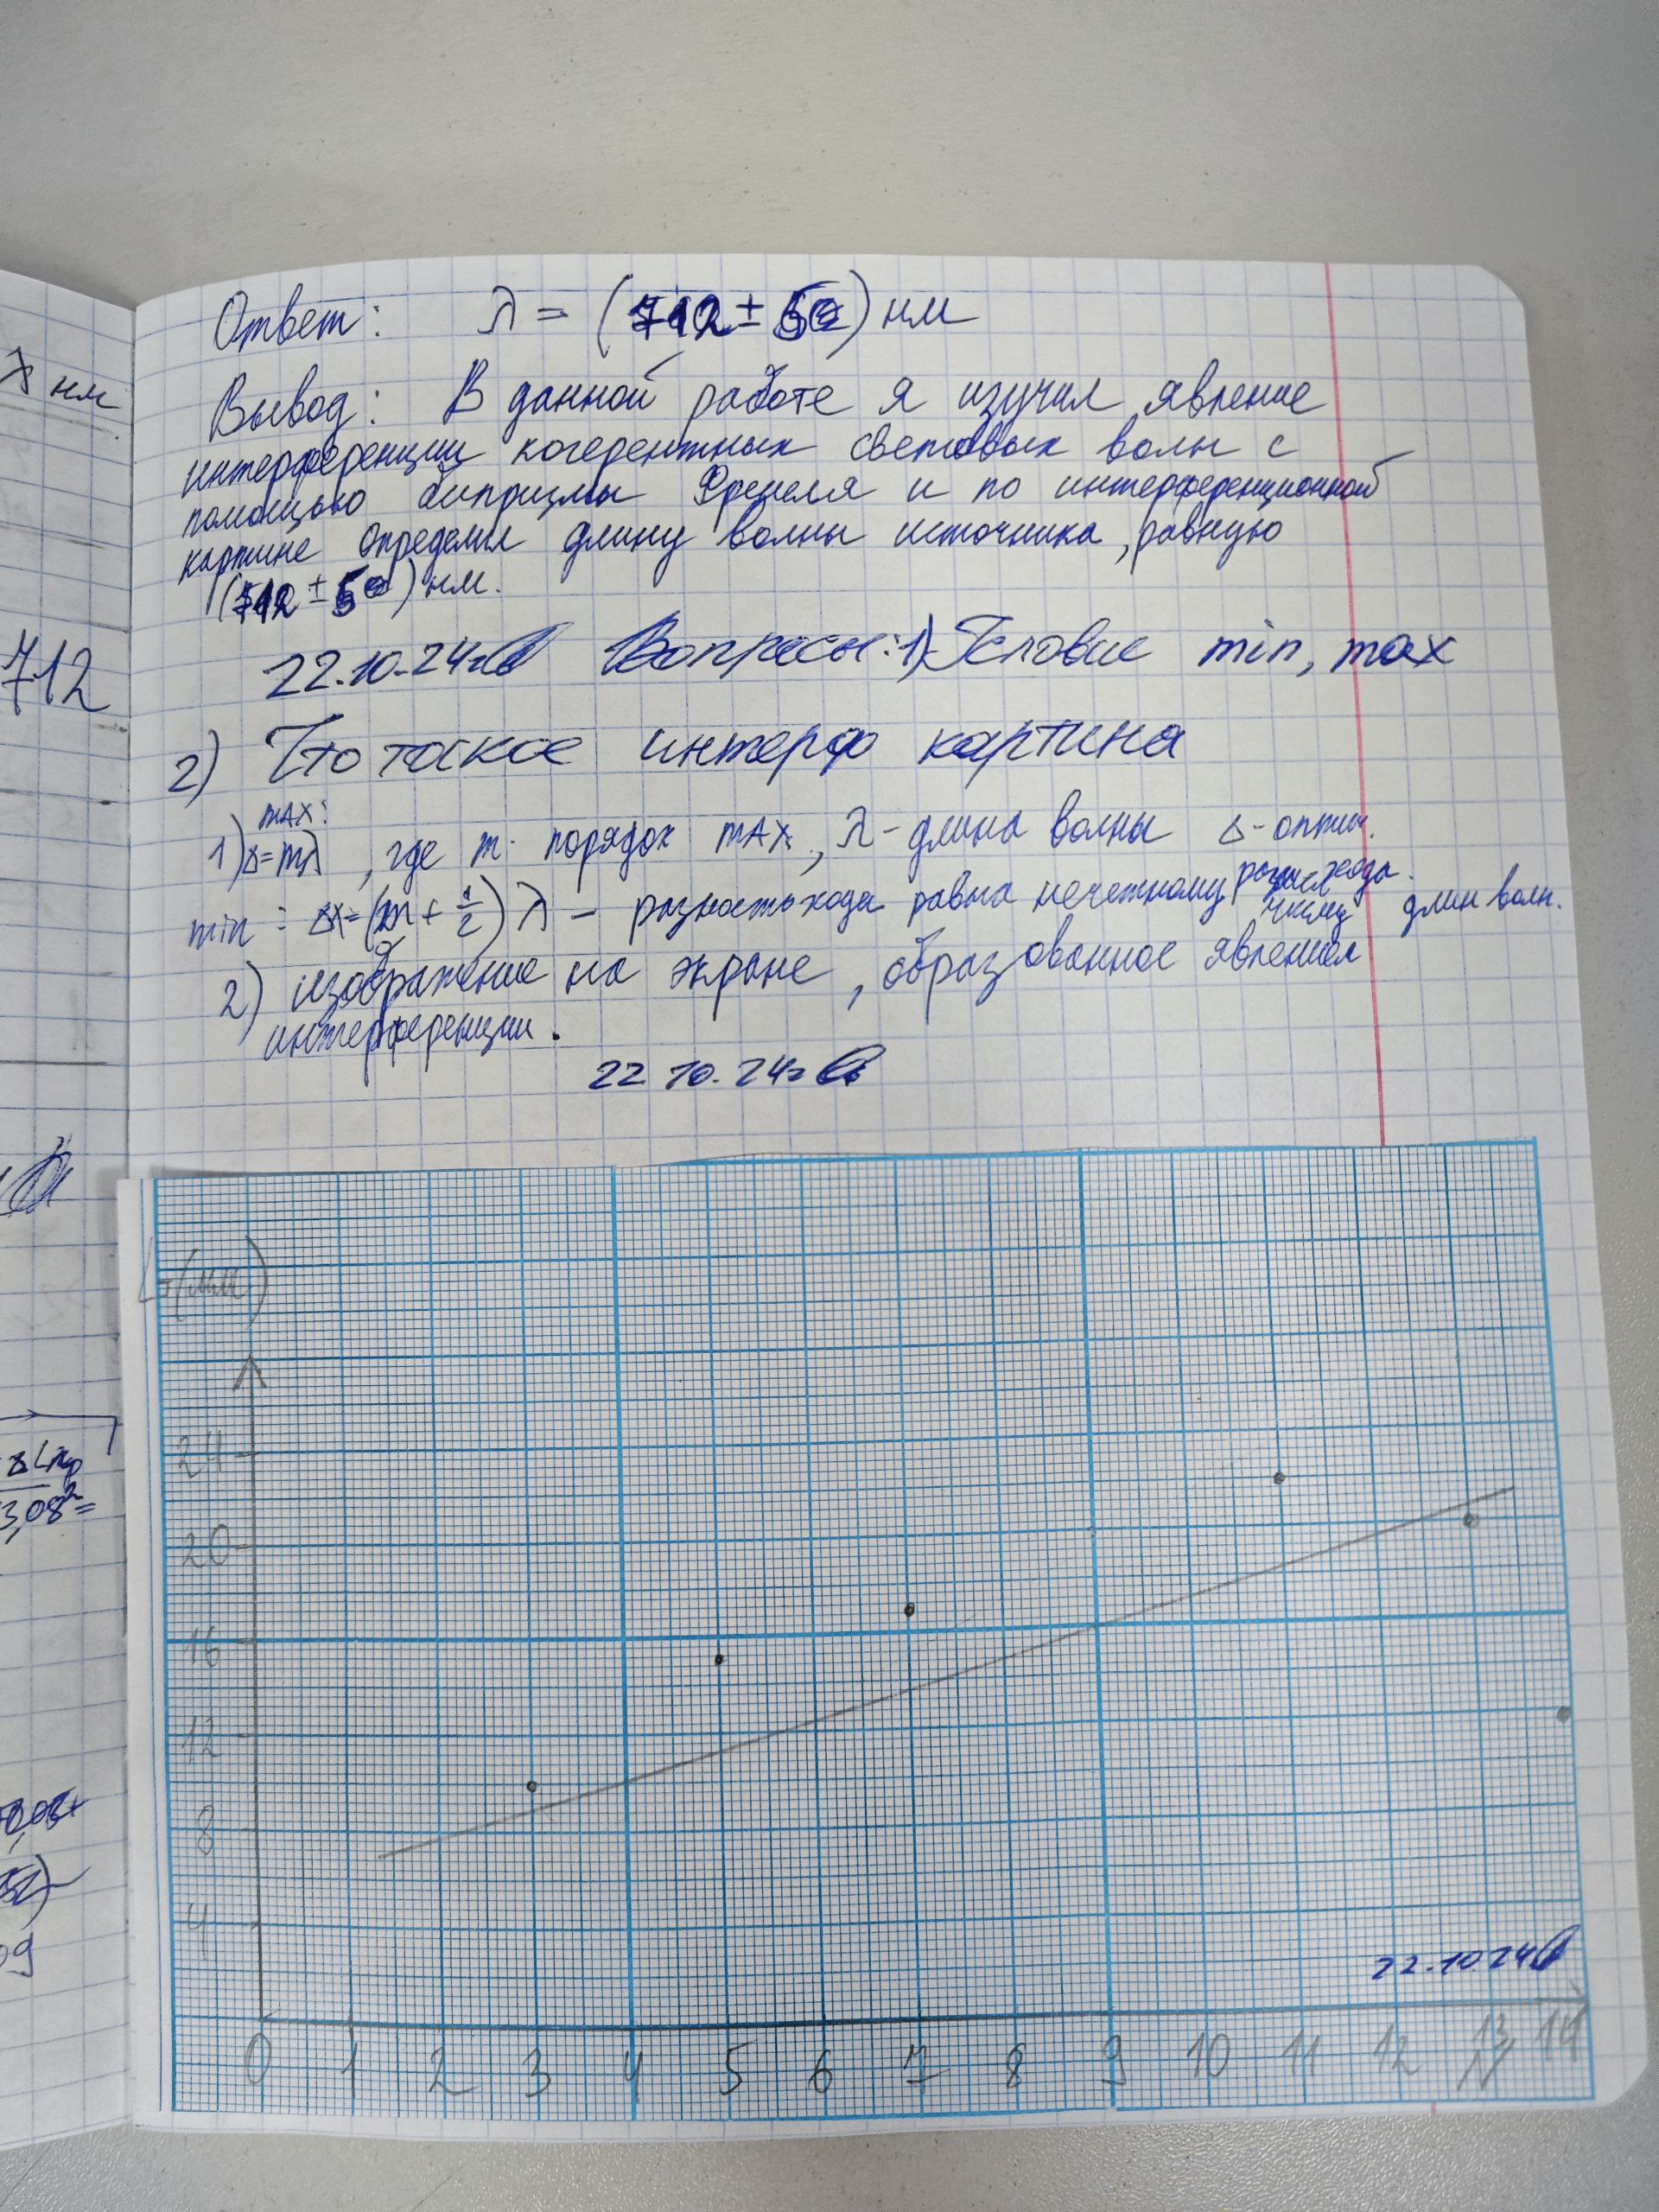 Ответ: λ = (712 ± 50) нм
Вывод: В данной работе я изучил явление
интерференции когерентных световых волн с
помощью бипризмы Френеля и по интерференционной
картине определил длину волны источника, равную
(712 ± 50) нм.
22.10.24г Вопросы: 1) Условие min, max
2) Что такое интерф картина
max:
1) Δ=mλ, где m - порядок max, λ - длина волны Δ - оптич.
разн. хода.
min: Δx=(m + 1/2) λ - разность хода равна нечетному числу длин волн.
2) изображение на экране, образованное явлением
интерференции.
22.10.24г
(мм)
24
20
16
12
8
4
22.10.24
0 1 2 3 4 5 6 7 8 9 10 11 12 13 14
N
нм
712
3,08²=